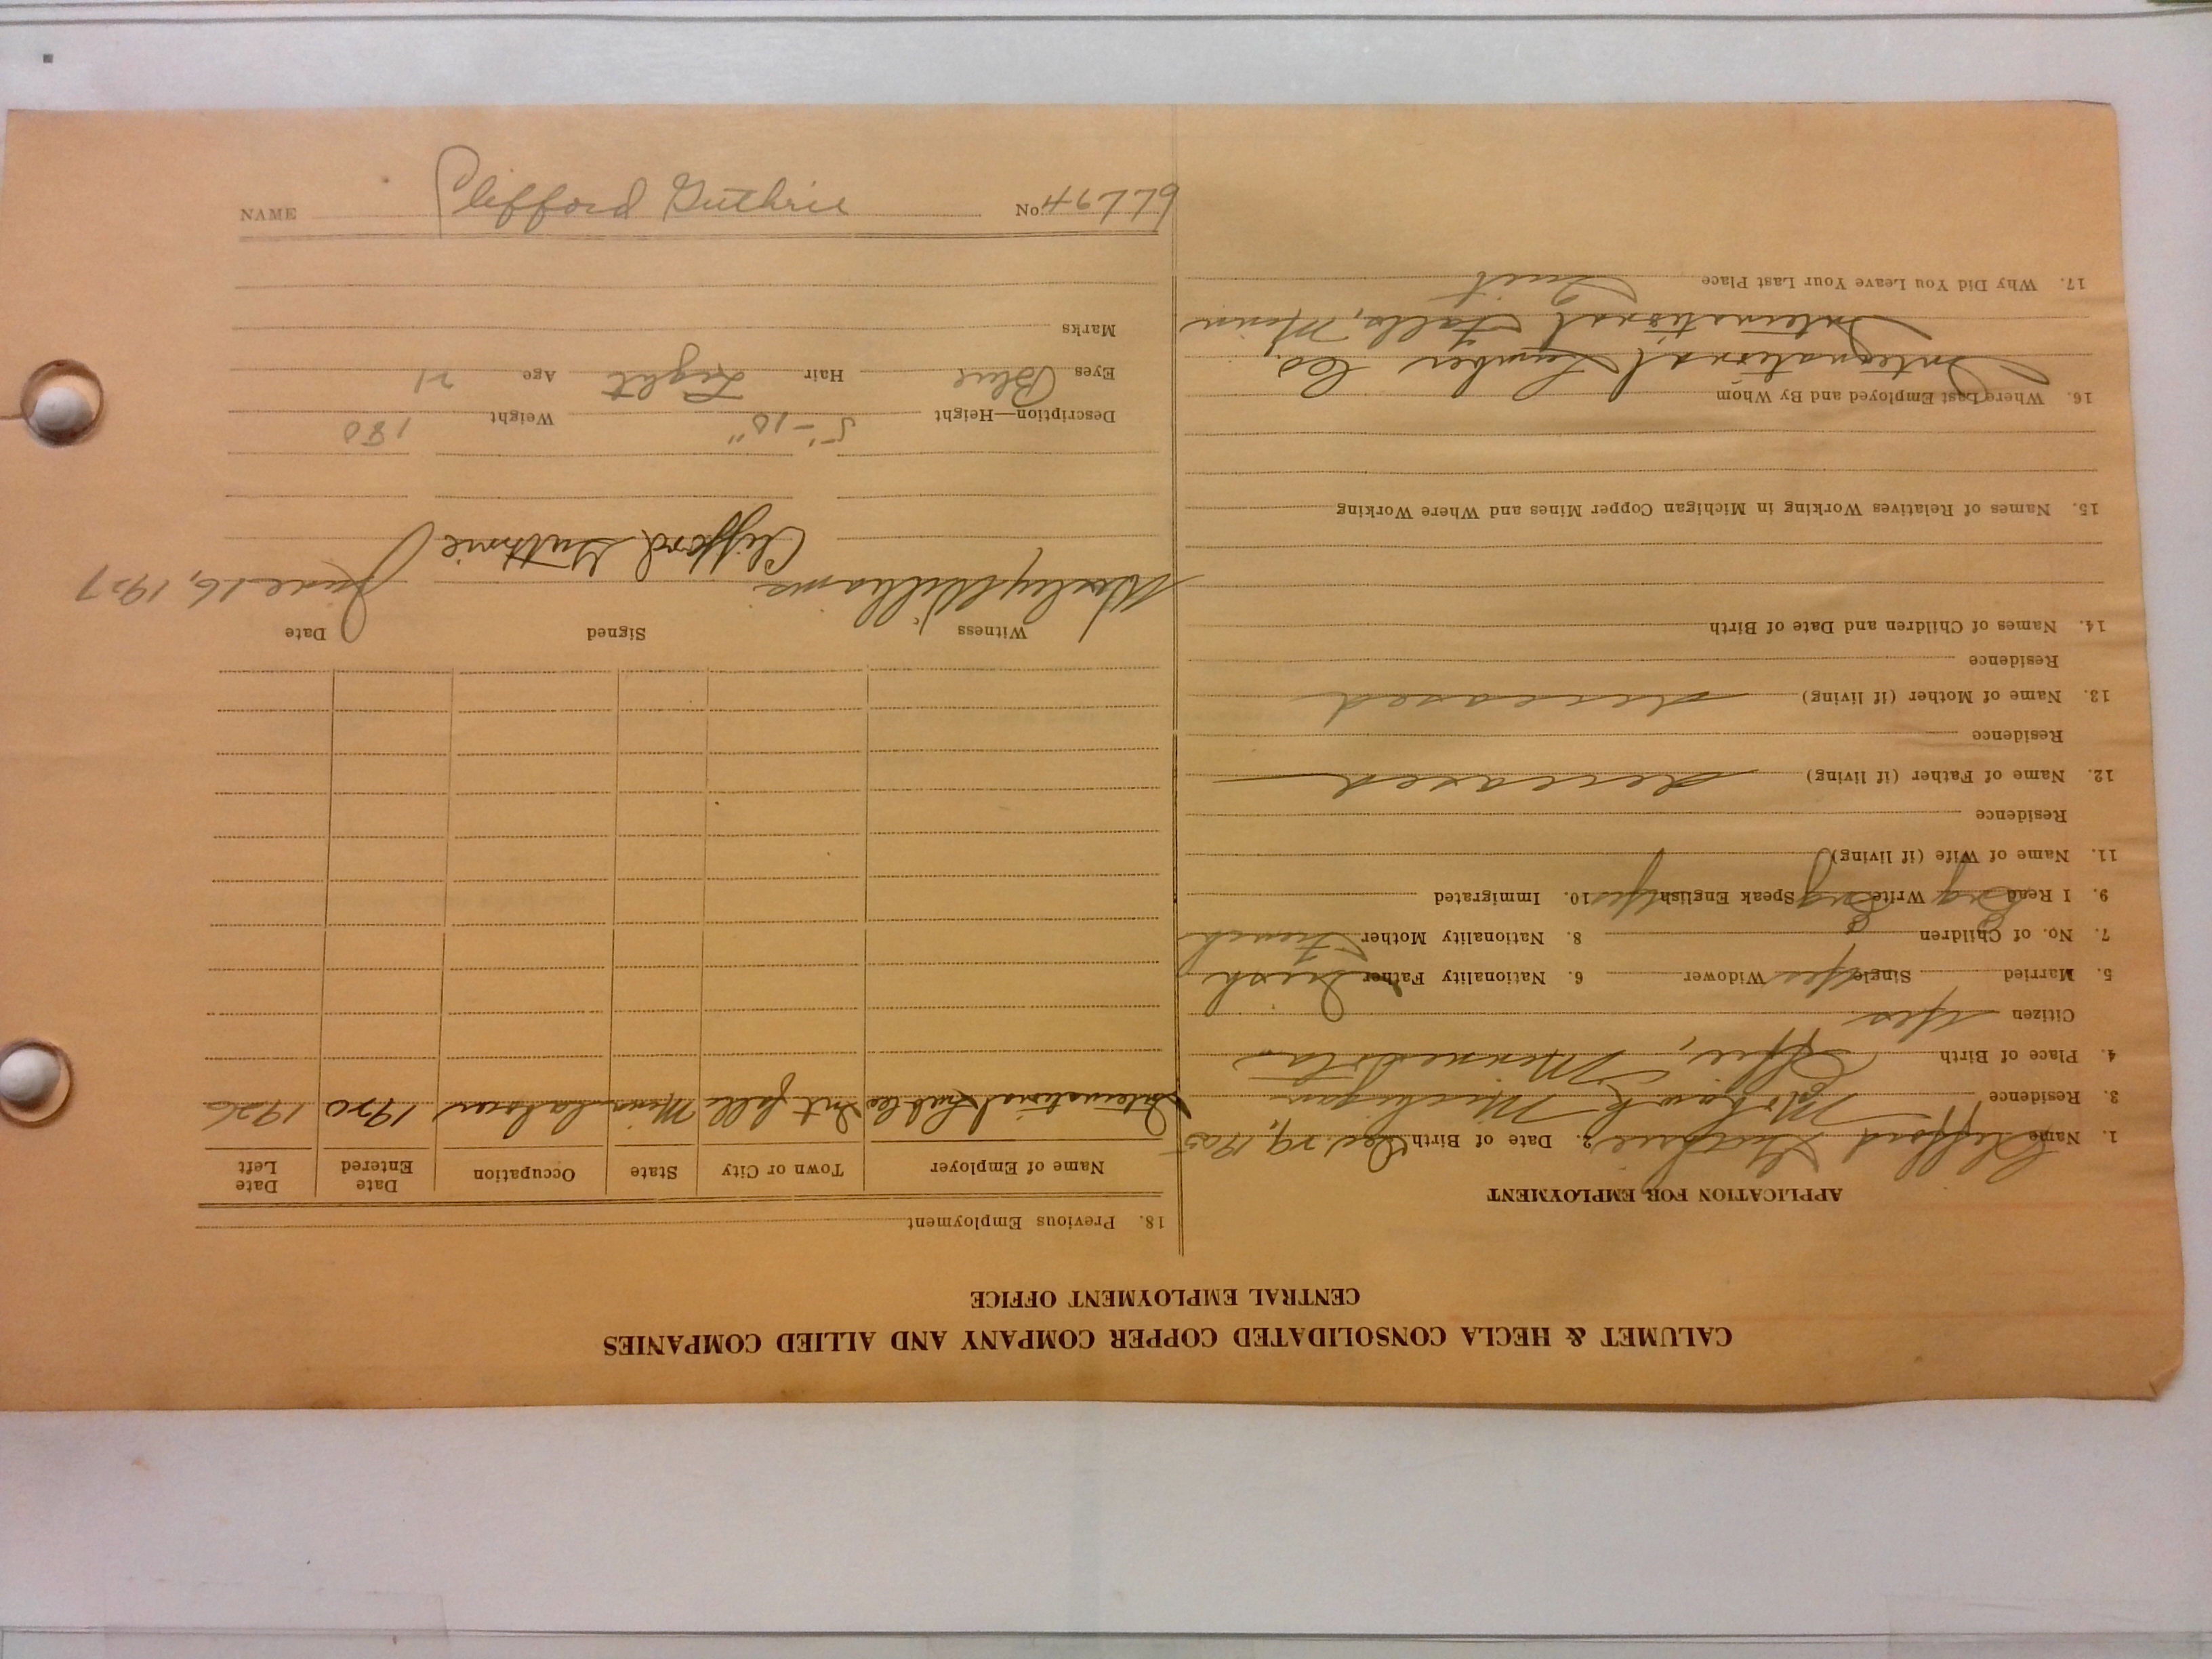 CALUMET & HECLA CONSOLIDATED COPPER COMPANY AND ALLIED COMPANIES
CENTRAL EMPLOYMENT OFFICE
APPLICATION FOR EMPLOYMENT
1. Name Clifford Guthrie 2. Date of Birth Dec. 29, 1905
3. Residence Mohawk Michigan
4. Place of Birth Effie, Minnesota
Citizen Yes
5. Married Single Yes Widower 6. Nationality Father Irish
7. No. of Children 8. Nationality Mother French
9. I Read Eng Write Eng Speak English Yes 10. Immigrated
11. Name of Wife (if living)
Residence
12. Name of Father (if living) deceased
Residence
13. Name of Mother (if living) deceased
Residence
14. Names of Children and Date of Birth
15. Names of Relatives Working in Michigan Copper Mines and Where Working
16. Where Last Employed and By Whom
International Lumber Co.
International Falls, Minn
17. Why Did You Leave Your Last Place Quit
18. Previous Employment
Name of Employer Town or City State Occupation Date Entered Date Left
International Lub Co Int falls Minn Laborer 1920 1926
Witness Signed Date
Williams Clifford Guthrie June 16, 1927
Description—Height 5'-10" Weight 180
Eyes Blue Hair Light Age 21
Marks
NAME Clifford Guthrie No. 46779